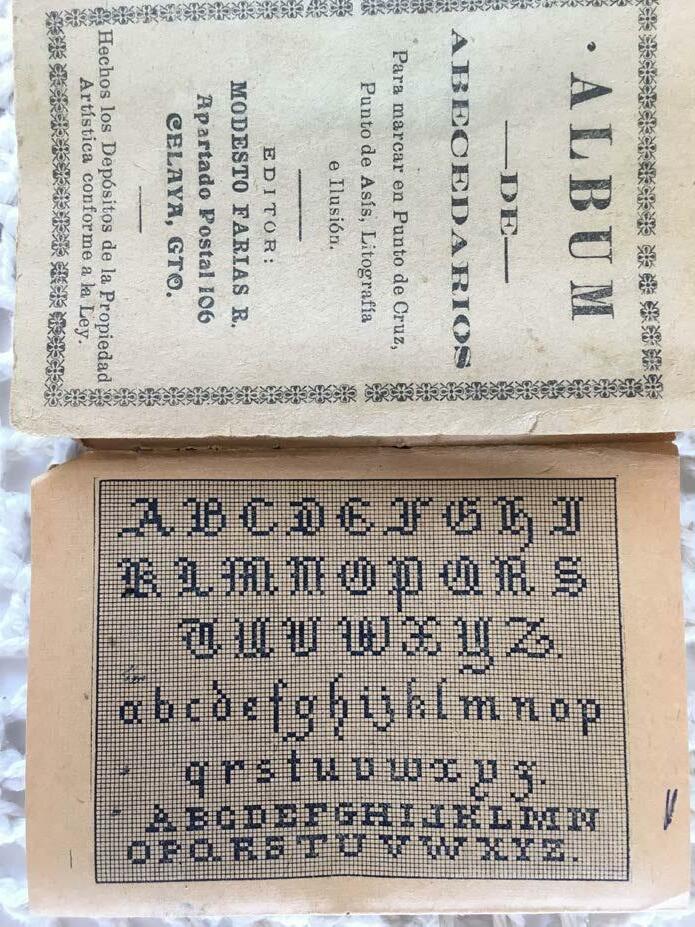 ALBUM
DE
ABECEDARIOS
Para marcar en Punto de Cruz,
Punto de Asís, Litografía
e Ilusión.
EDITOR:
MODESTO FARIAS R.
Apartado Postal 106
CELAYA, GTO.
Hechos los Depósitos de la Propiedad
Artística conforme a la Ley.
A B C D E F G H I
K L M N O P Q R S
T U V W X Y Z.
a b c d e f g h i j k l m n o p
q r s t u v w x y z.
A B C D E F G H I J K L M N
O P Q R S T U V W X Y Z.